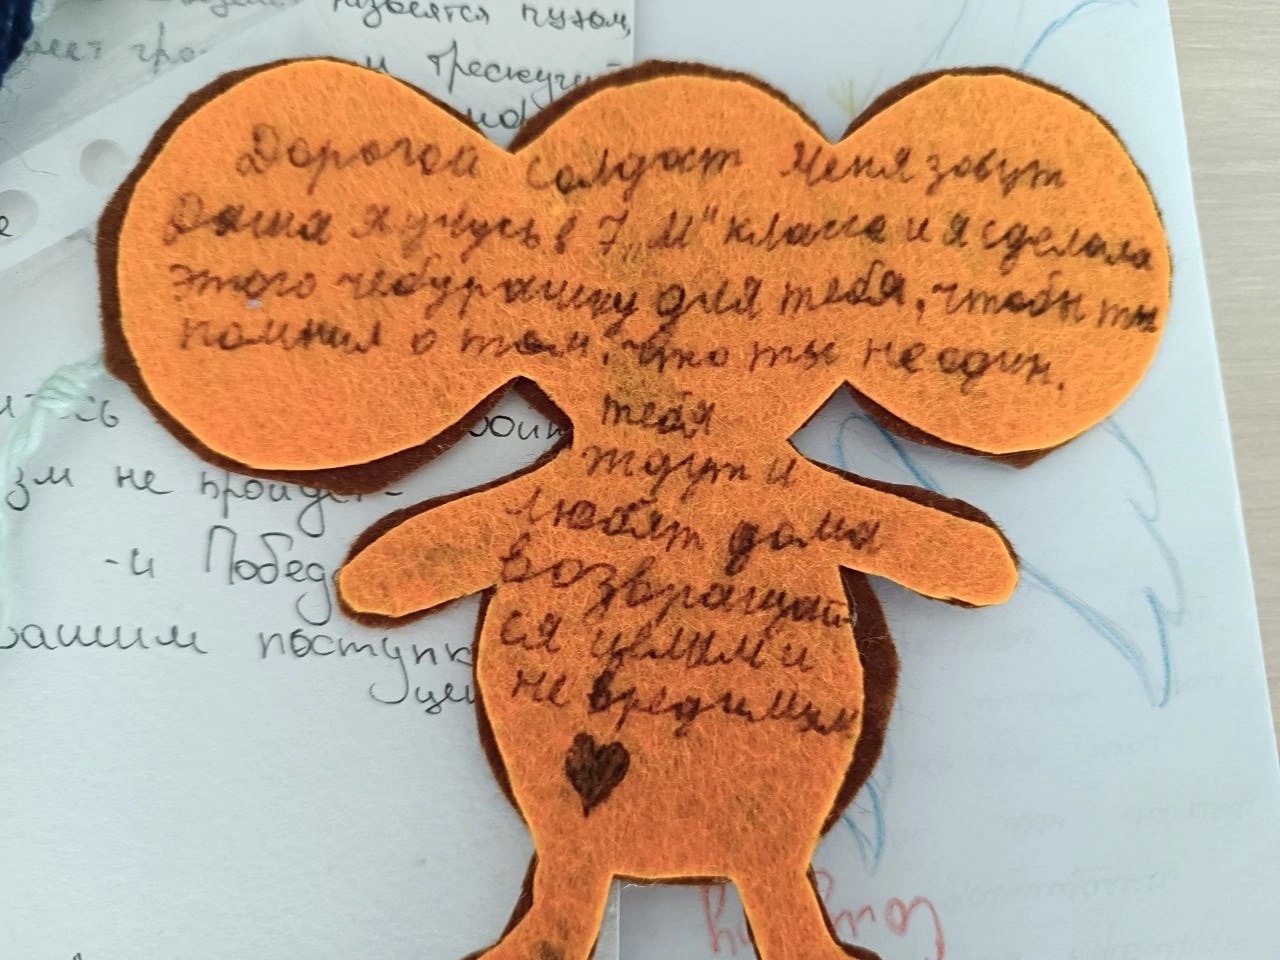 трескучий
Дорогой солдат Меня зовут
Даша я учусь в 7 „М" классе и я сделала
этого чебурашку для тебя, чтобы ты
помнил о том, что ты не один.
тебя
ждут и
любят дома
возвращай-
ся целым и
не вредимым
зм не пройдет-
-и Побед
вашим поступк